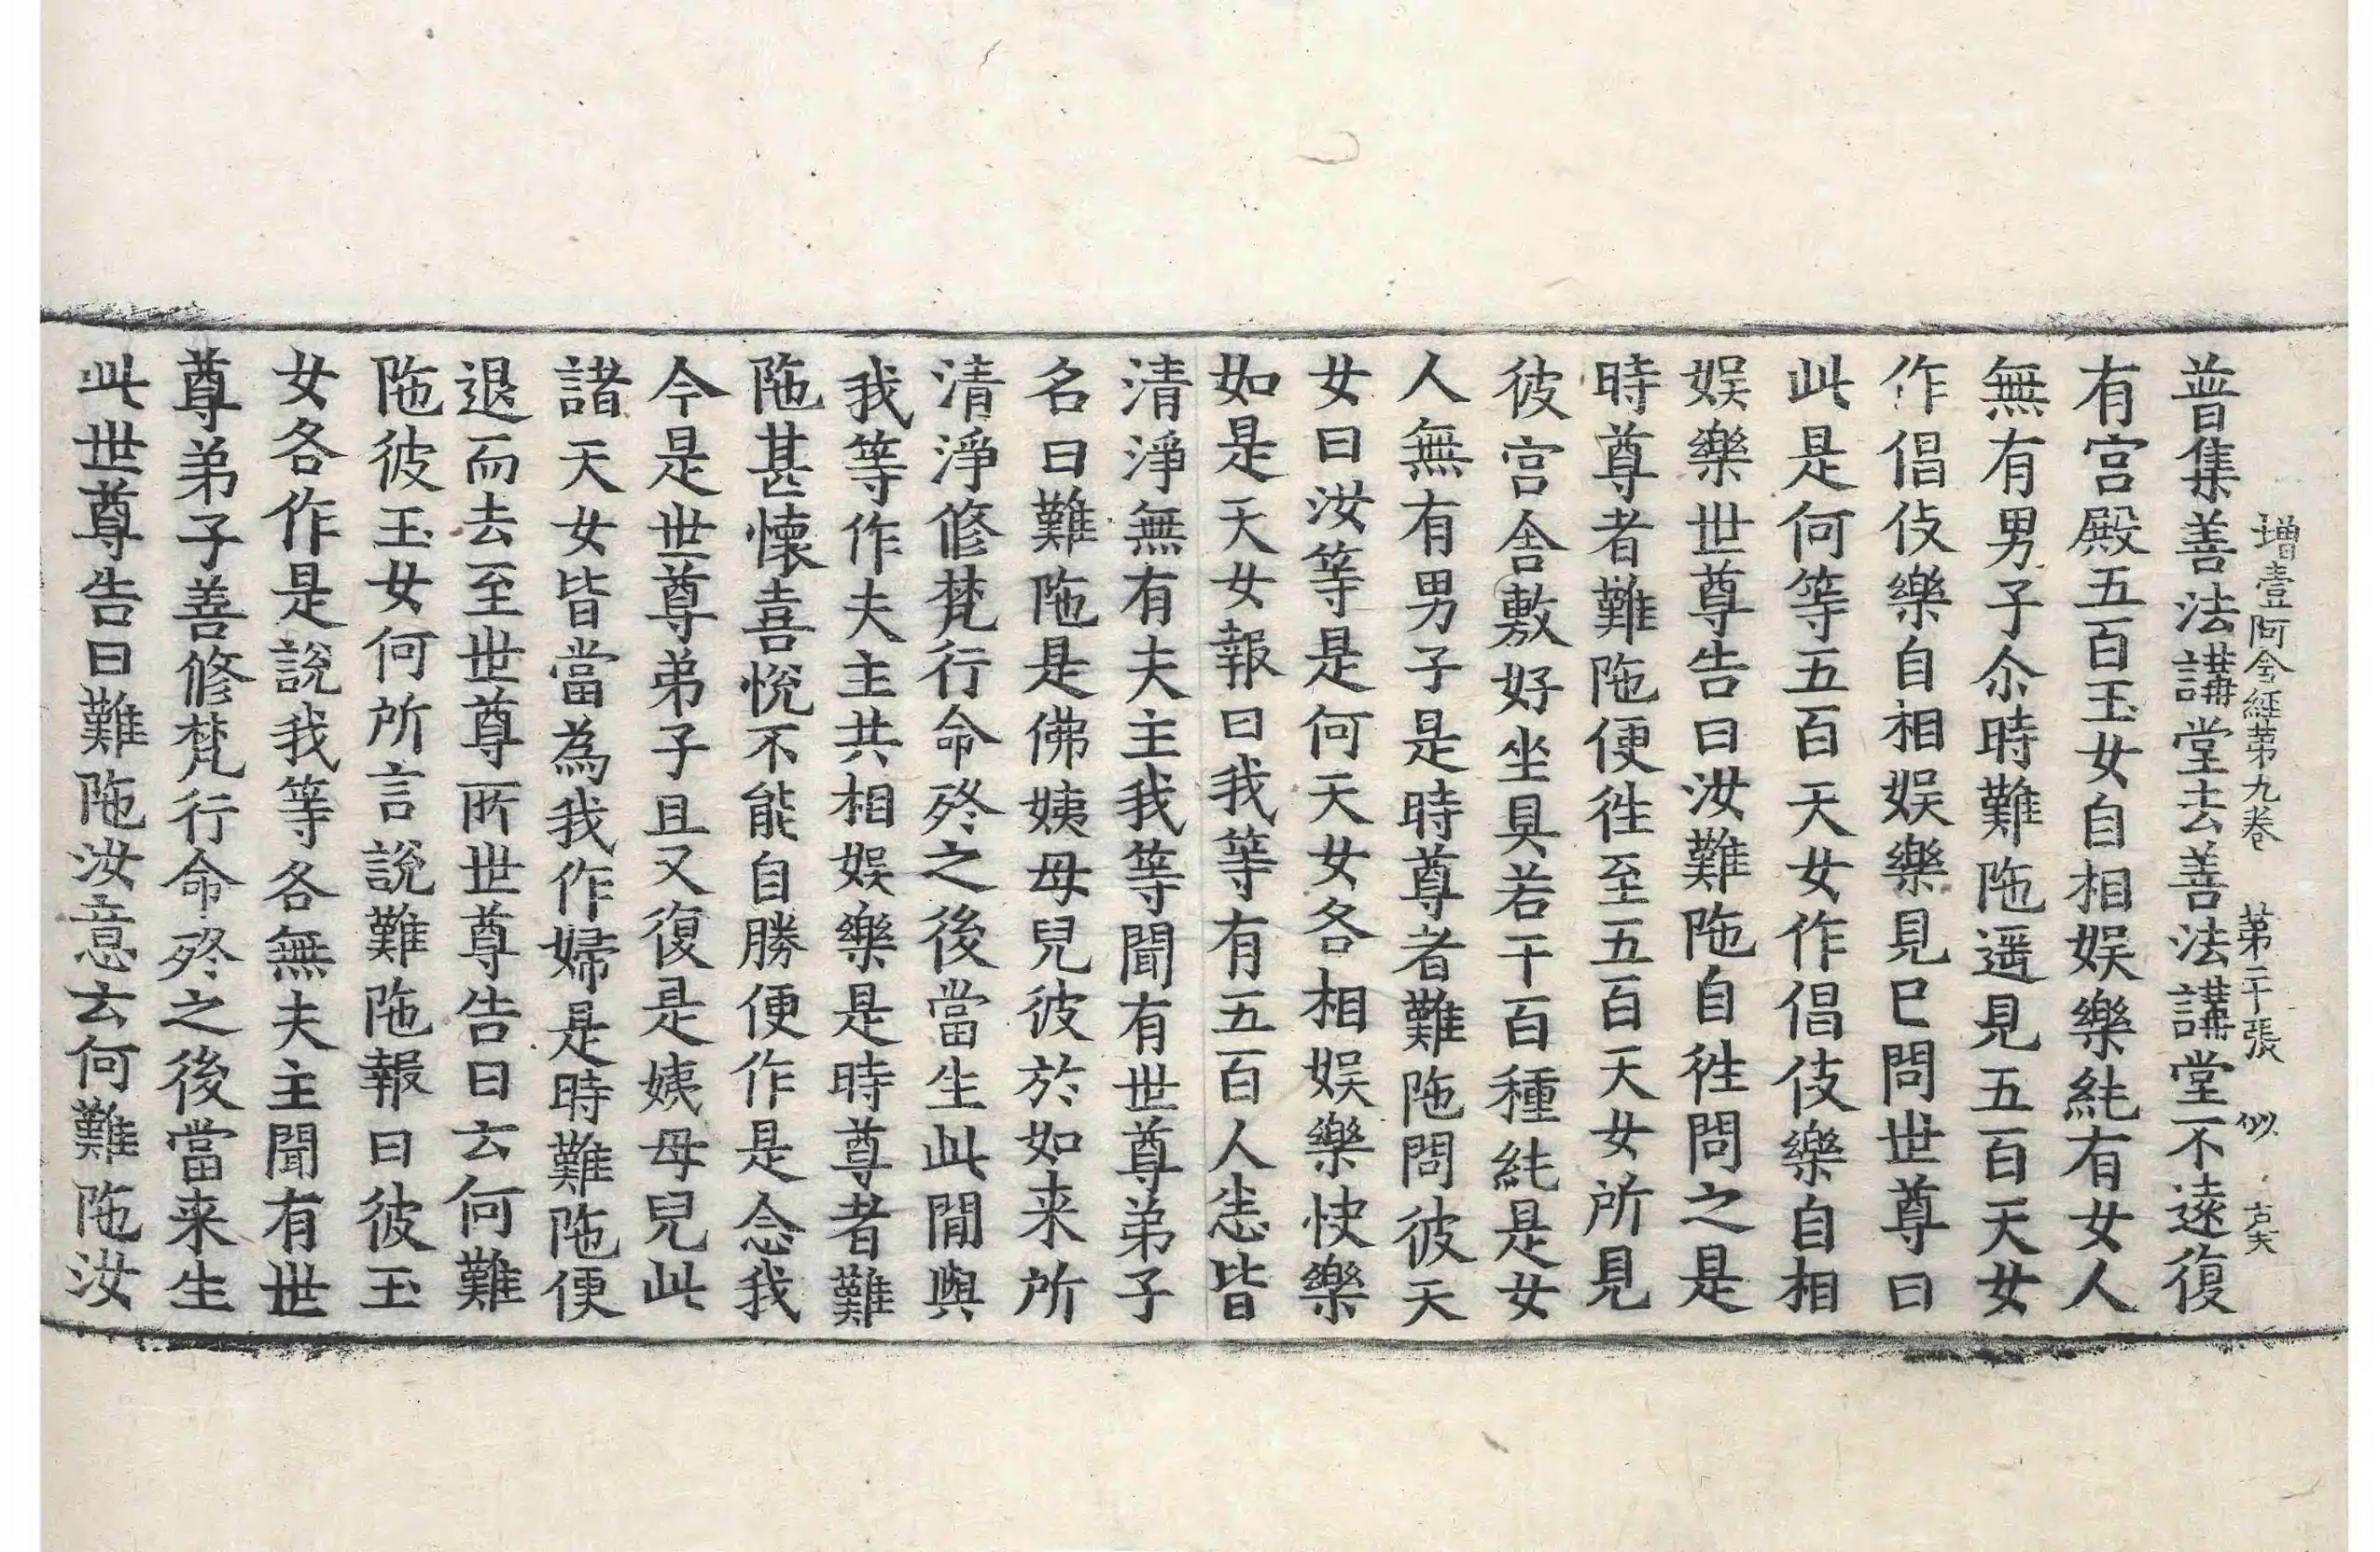 增壹阿含經第九卷　第二十張　似　古大
普集善法講堂去善法講堂不遠復
有宮殿五百玉女自相娛樂純有女人
無有男子尒時難陁遥見五百天女
作倡伎樂自相娛樂見巳問世尊曰
此是何等五百天女作倡伎樂自相
娛樂世尊告曰汝難陁自徃問之是
時尊者難陁便徃至五百天女所見
彼宮舍敷好坐具若干百種純是女
人無有男子是時尊者難陁問彼天
女曰汝等是何天女各相娛樂快樂
如是天女報曰我等有五百人恙皆
清淨無有夫主我等聞有世尊弟子
名曰難陁是佛姨母兒彼於如来所
清淨修梵行命終之後當生此閒與
我等作夫主共相娛樂是時尊者難
陁甚懷喜悅不能自勝便作是念我
今是世尊弟子且又復是姨母兒此
諸天女皆當為我作婦是時難陁便
退而去至世尊所世尊告曰云何難
陁彼玉女何所言說難陁報曰彼玉
女各作是說我等各無夫主聞有世
尊弟子善修梵行命終之後當来生
此世尊告曰難陁汝意云何難陁汝